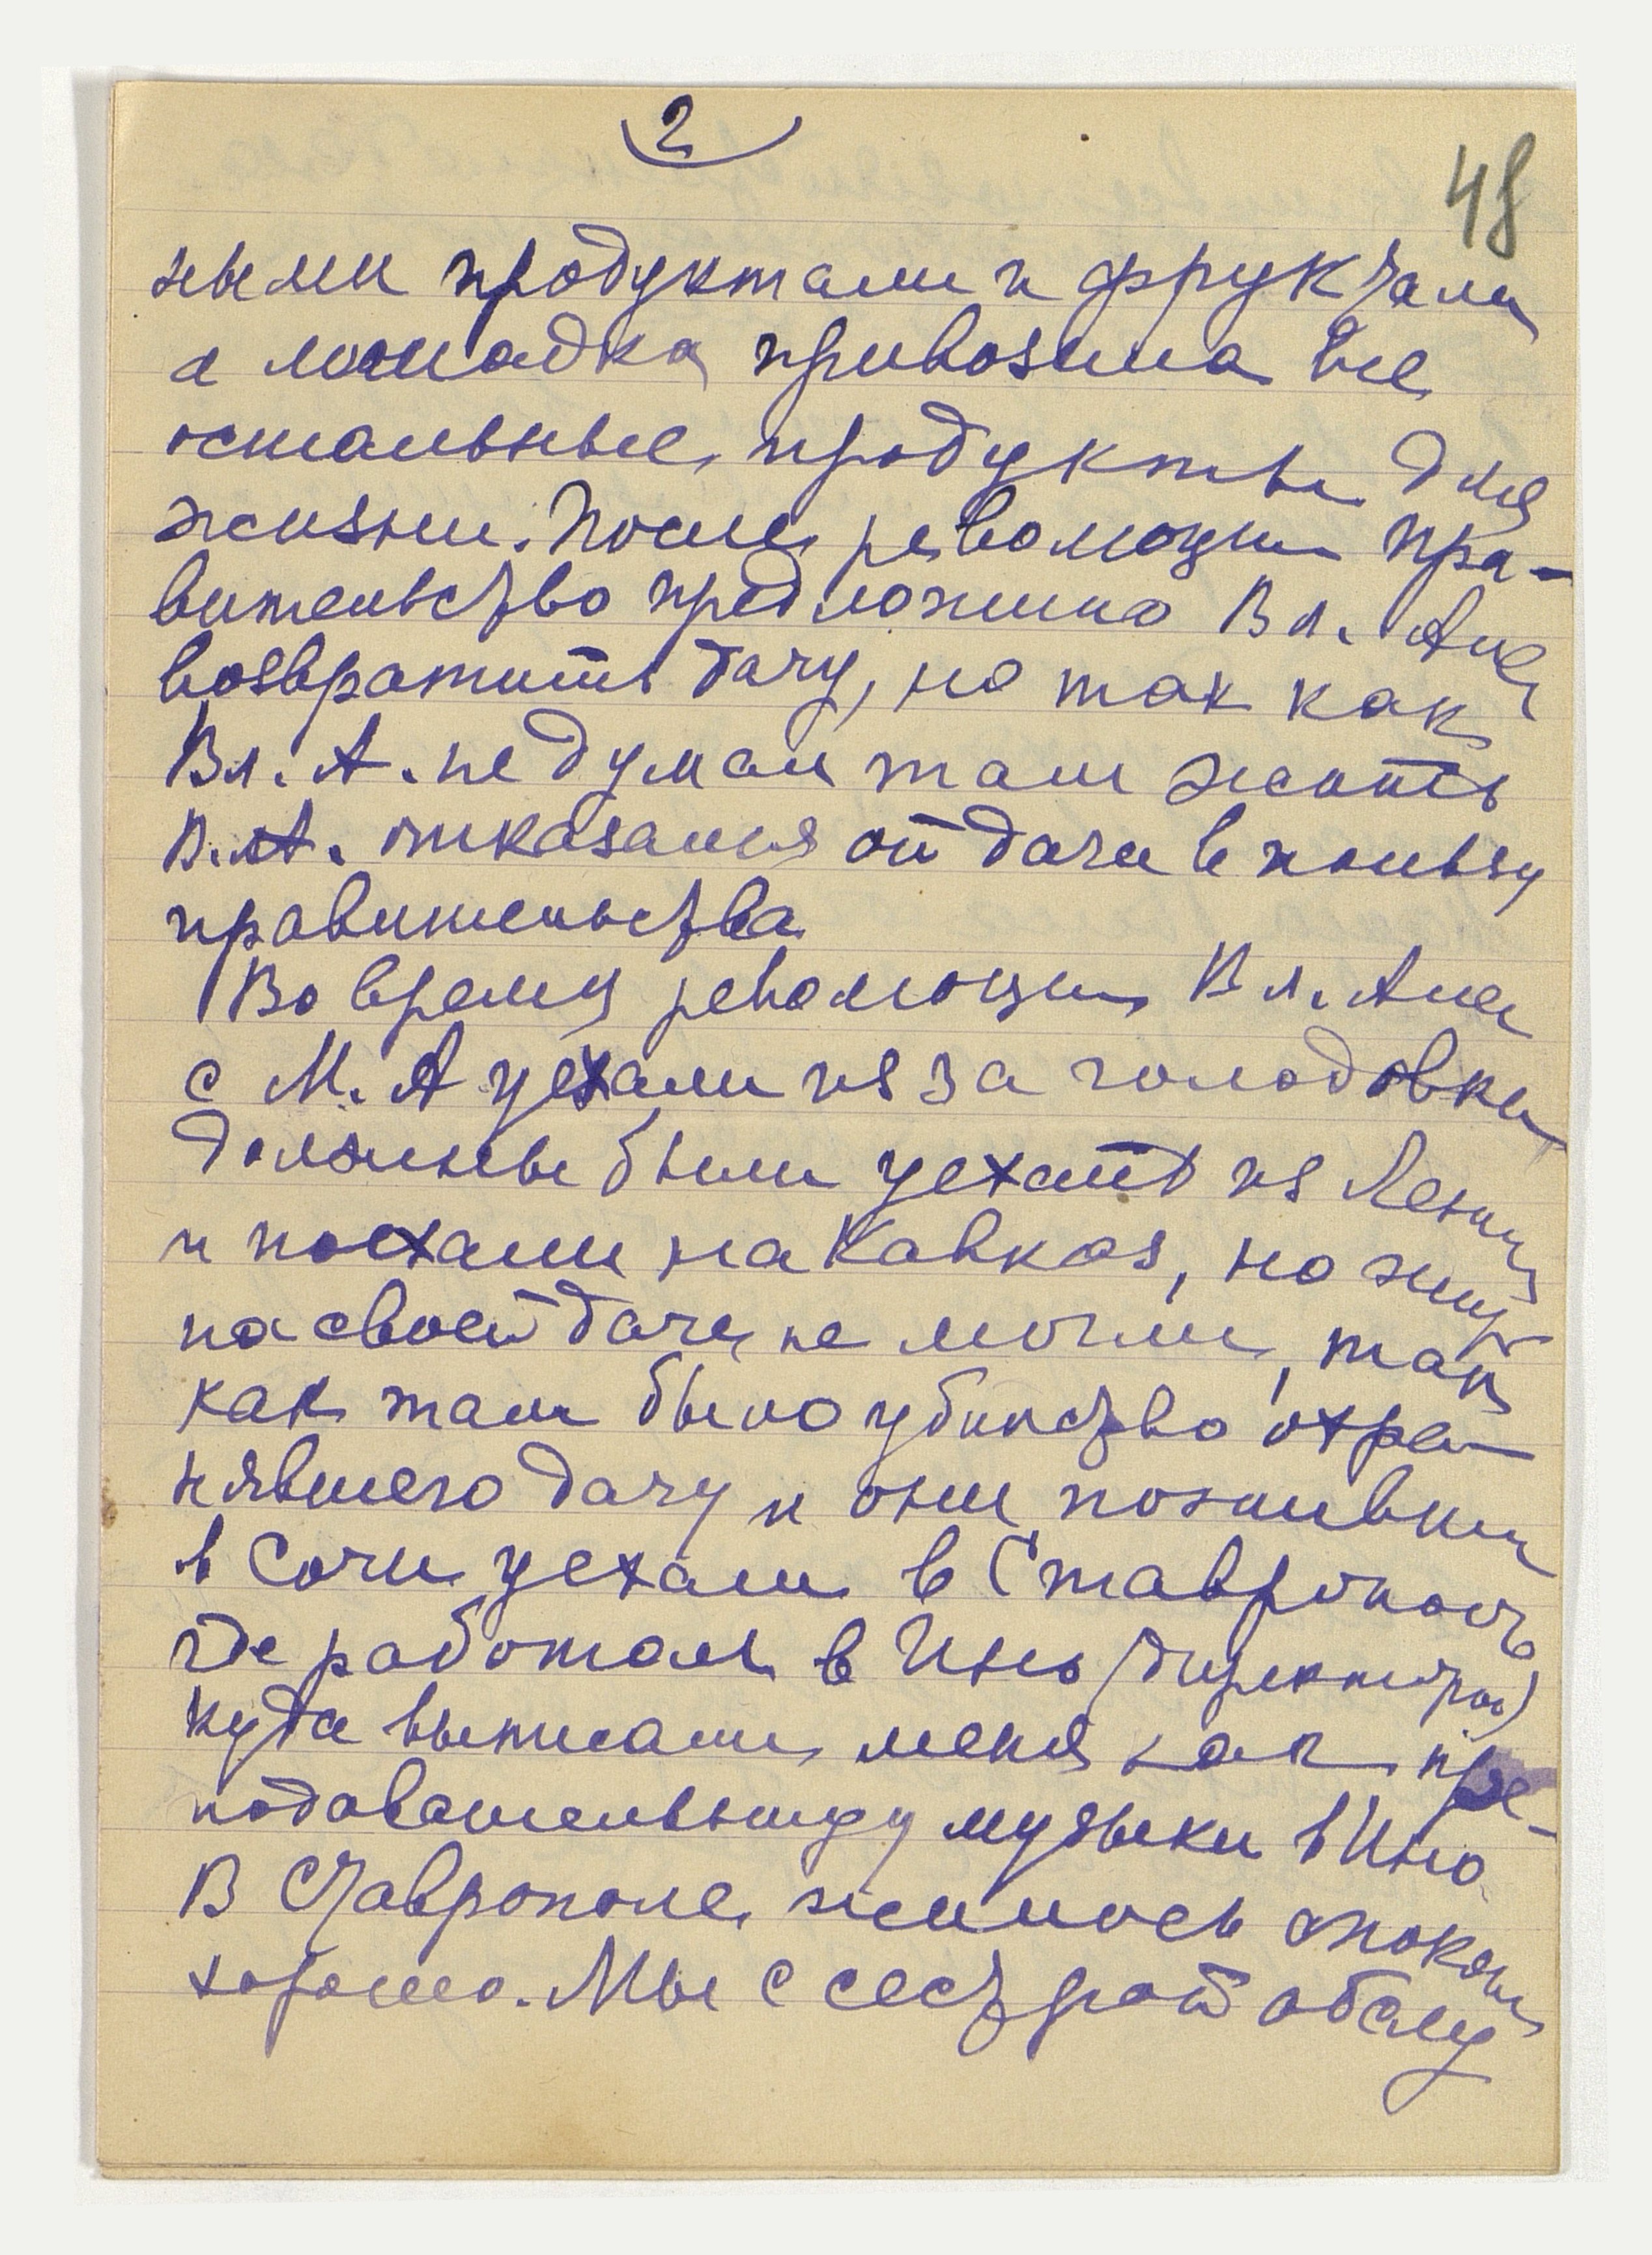 2
48
ными продуктами и фруктами
а лошадка привозила все
остальные продукты для
жизни. После революции пра-
вительство предложило Вл. Але
возвратить дачу, но так как
Вл. А. не думал там жить
В. А. отказался от дачи в пользу
правительства
Во время революции Вл. Але
с М. А уехали из за голодовки
должны были уехать из Ленин
и поехали на Кавказ, но жить
на своей даче не могли, так
как там было убийство охра-
нявшего дачу и они поживши
в Сочи уехали в Ставрополь
где работал в Ино (директором)
куда выписали меня как пре-
подавательницу музыки в Ино
В Ставрополе жилось спокойн
хорошо. Мы с сестрой обслу